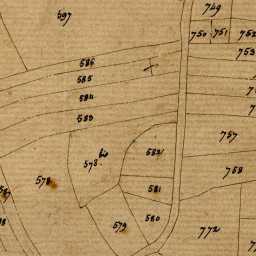 697
749
750
751
752
753
586
585
584
583
757
578 b
582
758
578
581
579
580
772